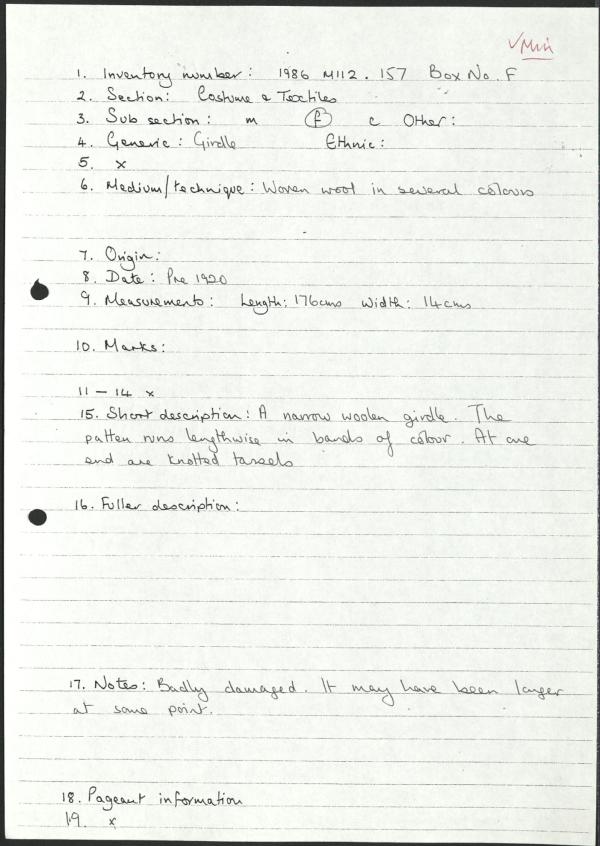 ✓Min
1. Inventory number: 1986 M112.157 Box No. F
2. Section: Costume & Textiles
3. Sub section: m f c Other:
4. Generic: Girdle Ethnic:
5. x
6. Medium/technique: Woven wool in several colours
7. Origin:
8. Date: Pre 1920
9. Measurements: Length: 176cms Width: 14cms
10. Marks:
11 - 14 x
15. Short description: A narrow woolen girdle. The
patten runs lengthwise in bands of colour. At one
end are knotted tassels
16. Fuller description:
17. Notes: Badly damaged. It may have been longer
at some point.
18. Pageant information
19. x